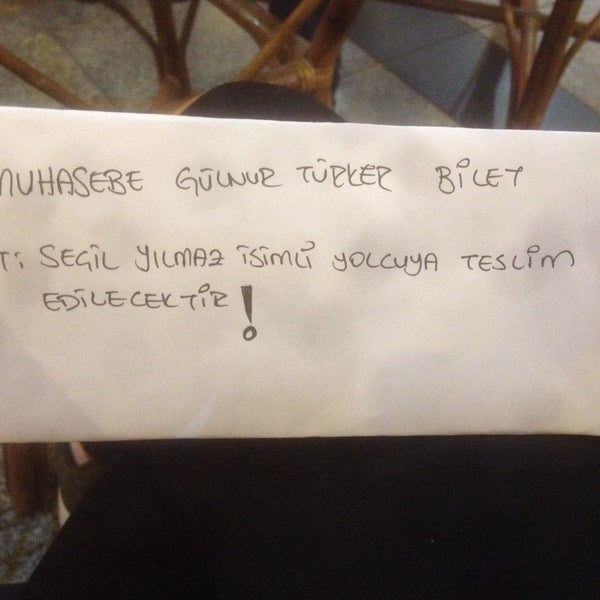 MUHASEBE GÜLNUR TÜRKER BİLET
T: SEGİL YILMAZ İSİMLİ YOLCUYA TESLİM
EDİLECEKTİR!